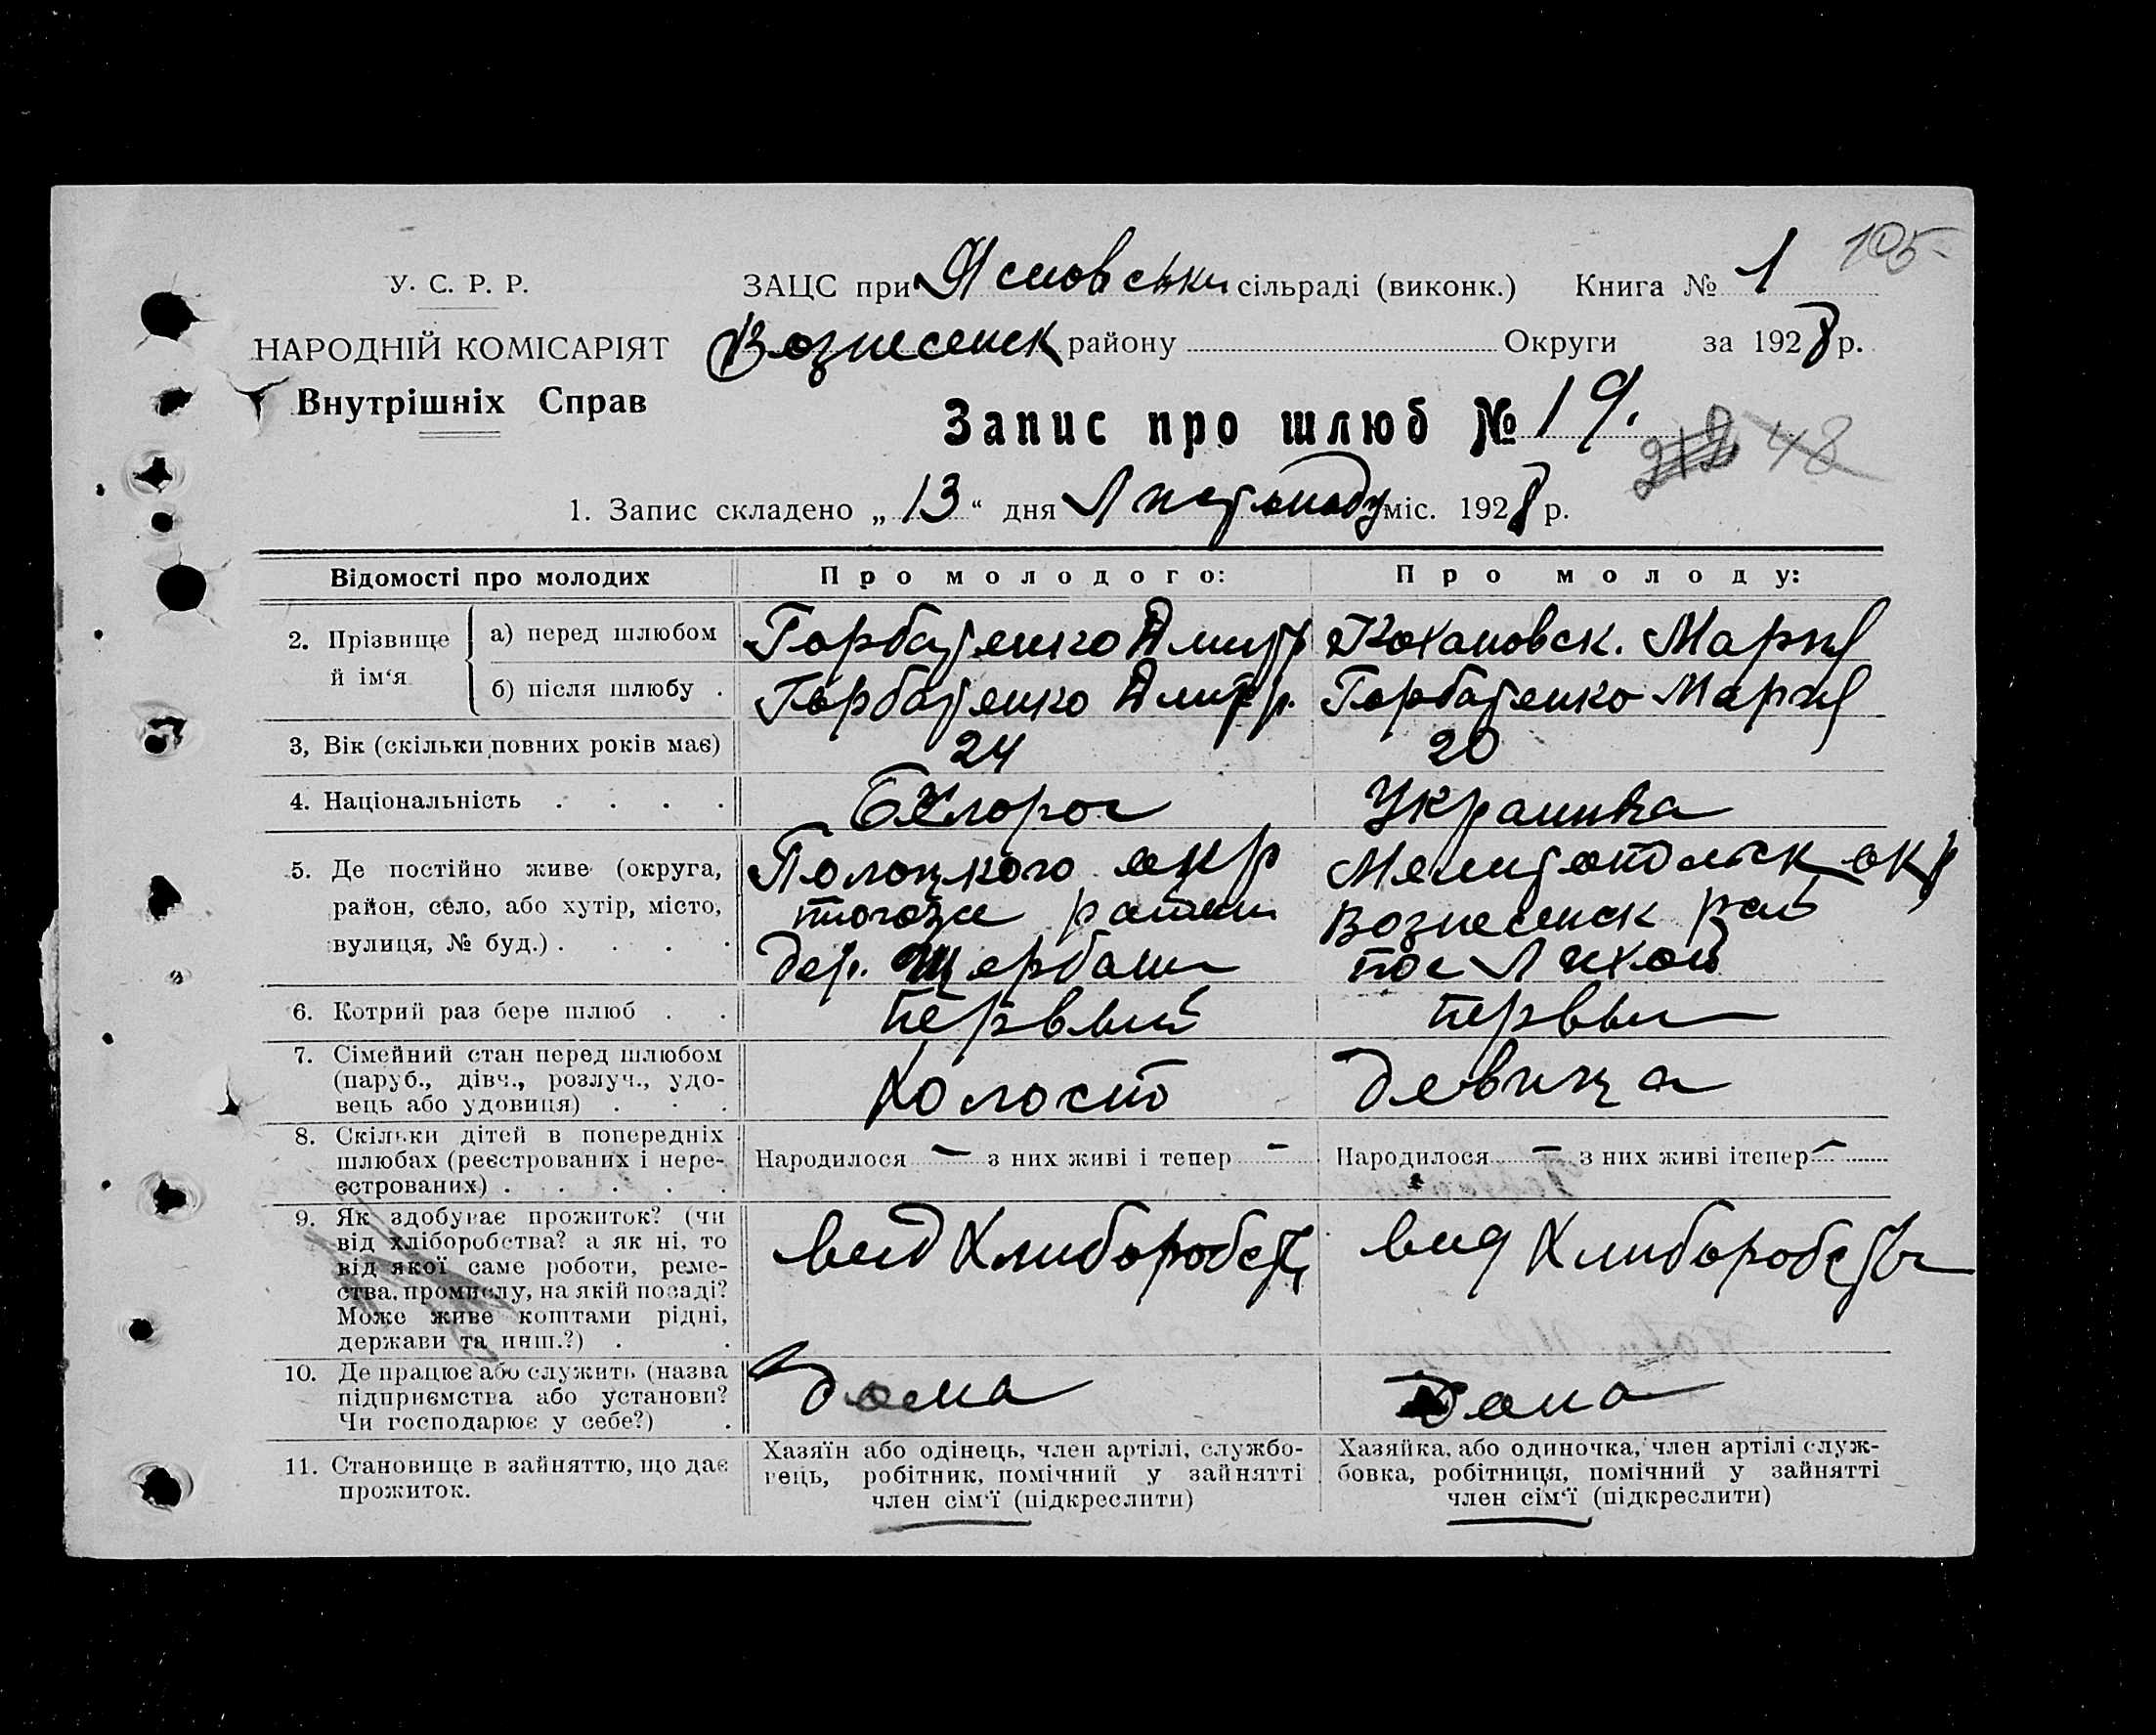 105
У. С. Р. Р.
ЗАЦС при Ясновськи сільраді (виконк.) Книга № 1
НАРОДНІЙ КОМІСАРІЯТ
Вознесенск району Округи за 1928 р.
Внутрішніх Справ
Запис про шлюб № 19.
212 48
1. Запис складено „13“ дня Листопаду міс. 1928 р.
Відомості про молодих Про молодого: Про молоду:
2. Прізвище й ім‘я
а) перед шлюбом Горбатенко Дмитр Кохановск. Мария
б) після шлюбу . Горбатенко Дмитр. Горбатенко Мария
3, Вік (скільки повних років має) 24 20
4. Національність . . . . Украинка
5. Де постійно живе (округа, район, село, або хутір, місто, вулиця, № буд.) . . . .
Полоцкого окр
тогоже
дер. Щербаки
Мелитопольск окр
Вознесенск
пос Лихой
6. Котрий раз бере шлюб . . Первый Первы
7. Сімейний стан перед шлюбом
(паруб., дівч., розлуч., удо-
вець або удовиця) . . . Холосто Девица
8. Скільки дітей в попередніх
шлюбах (реєстрованих і нере-
єстрованих) . . . . .
Народилося — з них живі і тепер —
Народилося — з них живі ітепер —
9. Як здобуває прожиток? (чи
від хліборобства? а як ні, то
від якої саме роботи, реме-
ства, промислу, на якій посаді?
Може живе коштами рідні,
держави та инш.?) . .
вид Хлиборобст вид Хлиборобства
10. Де працює або служить (назва
підприємства або установи?
Чи господарює у себе?) .
Дома Дома
11. Становище в зайняттю, що дає
прожиток.
Хазяїн або одінець, член артілі, службо-
вець, робітник, помічний у зайнятті
член сім‘ї (підкреслити)
Хазяйка, або одиночка, член артілі служ-
бовка, робітниця, помічний у зайнятті
член сім‘ї (підкреслити)